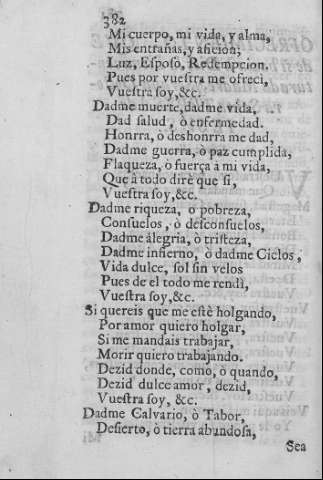 382
Mi cuerpo, mi vida, y alma,
Mis entrañas, y aficion;
Luz, Esposo, Redempcion.
Pues por vuestra me ofreci,
Vuestra soy, &c.
Dadme muerte, dadme vida,
Dad salud, ò enfermedad.
Honrra, ò deshonrra me dad,
Dadme guerra, ò paz cumplida,
Flaqueza, ò fuerça à mi vida,
Que à todo dirè que si,
Vuestra soy, &c.
Dadme riqueza, o pobreza,
Consuelos, ò desconsuelos,
Dadme álegria, ò tristeza,
Dadme infierno, ò dadme Cielos,
Vida dulce, sol sin velos
Pues de el todo me rendì,
Vuestra soy, &c.
Si quereis que me estè holgando,
Por amor quiero holgar,
Si me mandais trabajar,
Morir quiero trabajando.
Dezid donde, como, ò quando,
Dezid dulce amor, dezid,
Vuestra soy, &c.
Dadme Calvario, ò Tabor,
Desierto, ò tierra abundosa,
Sea